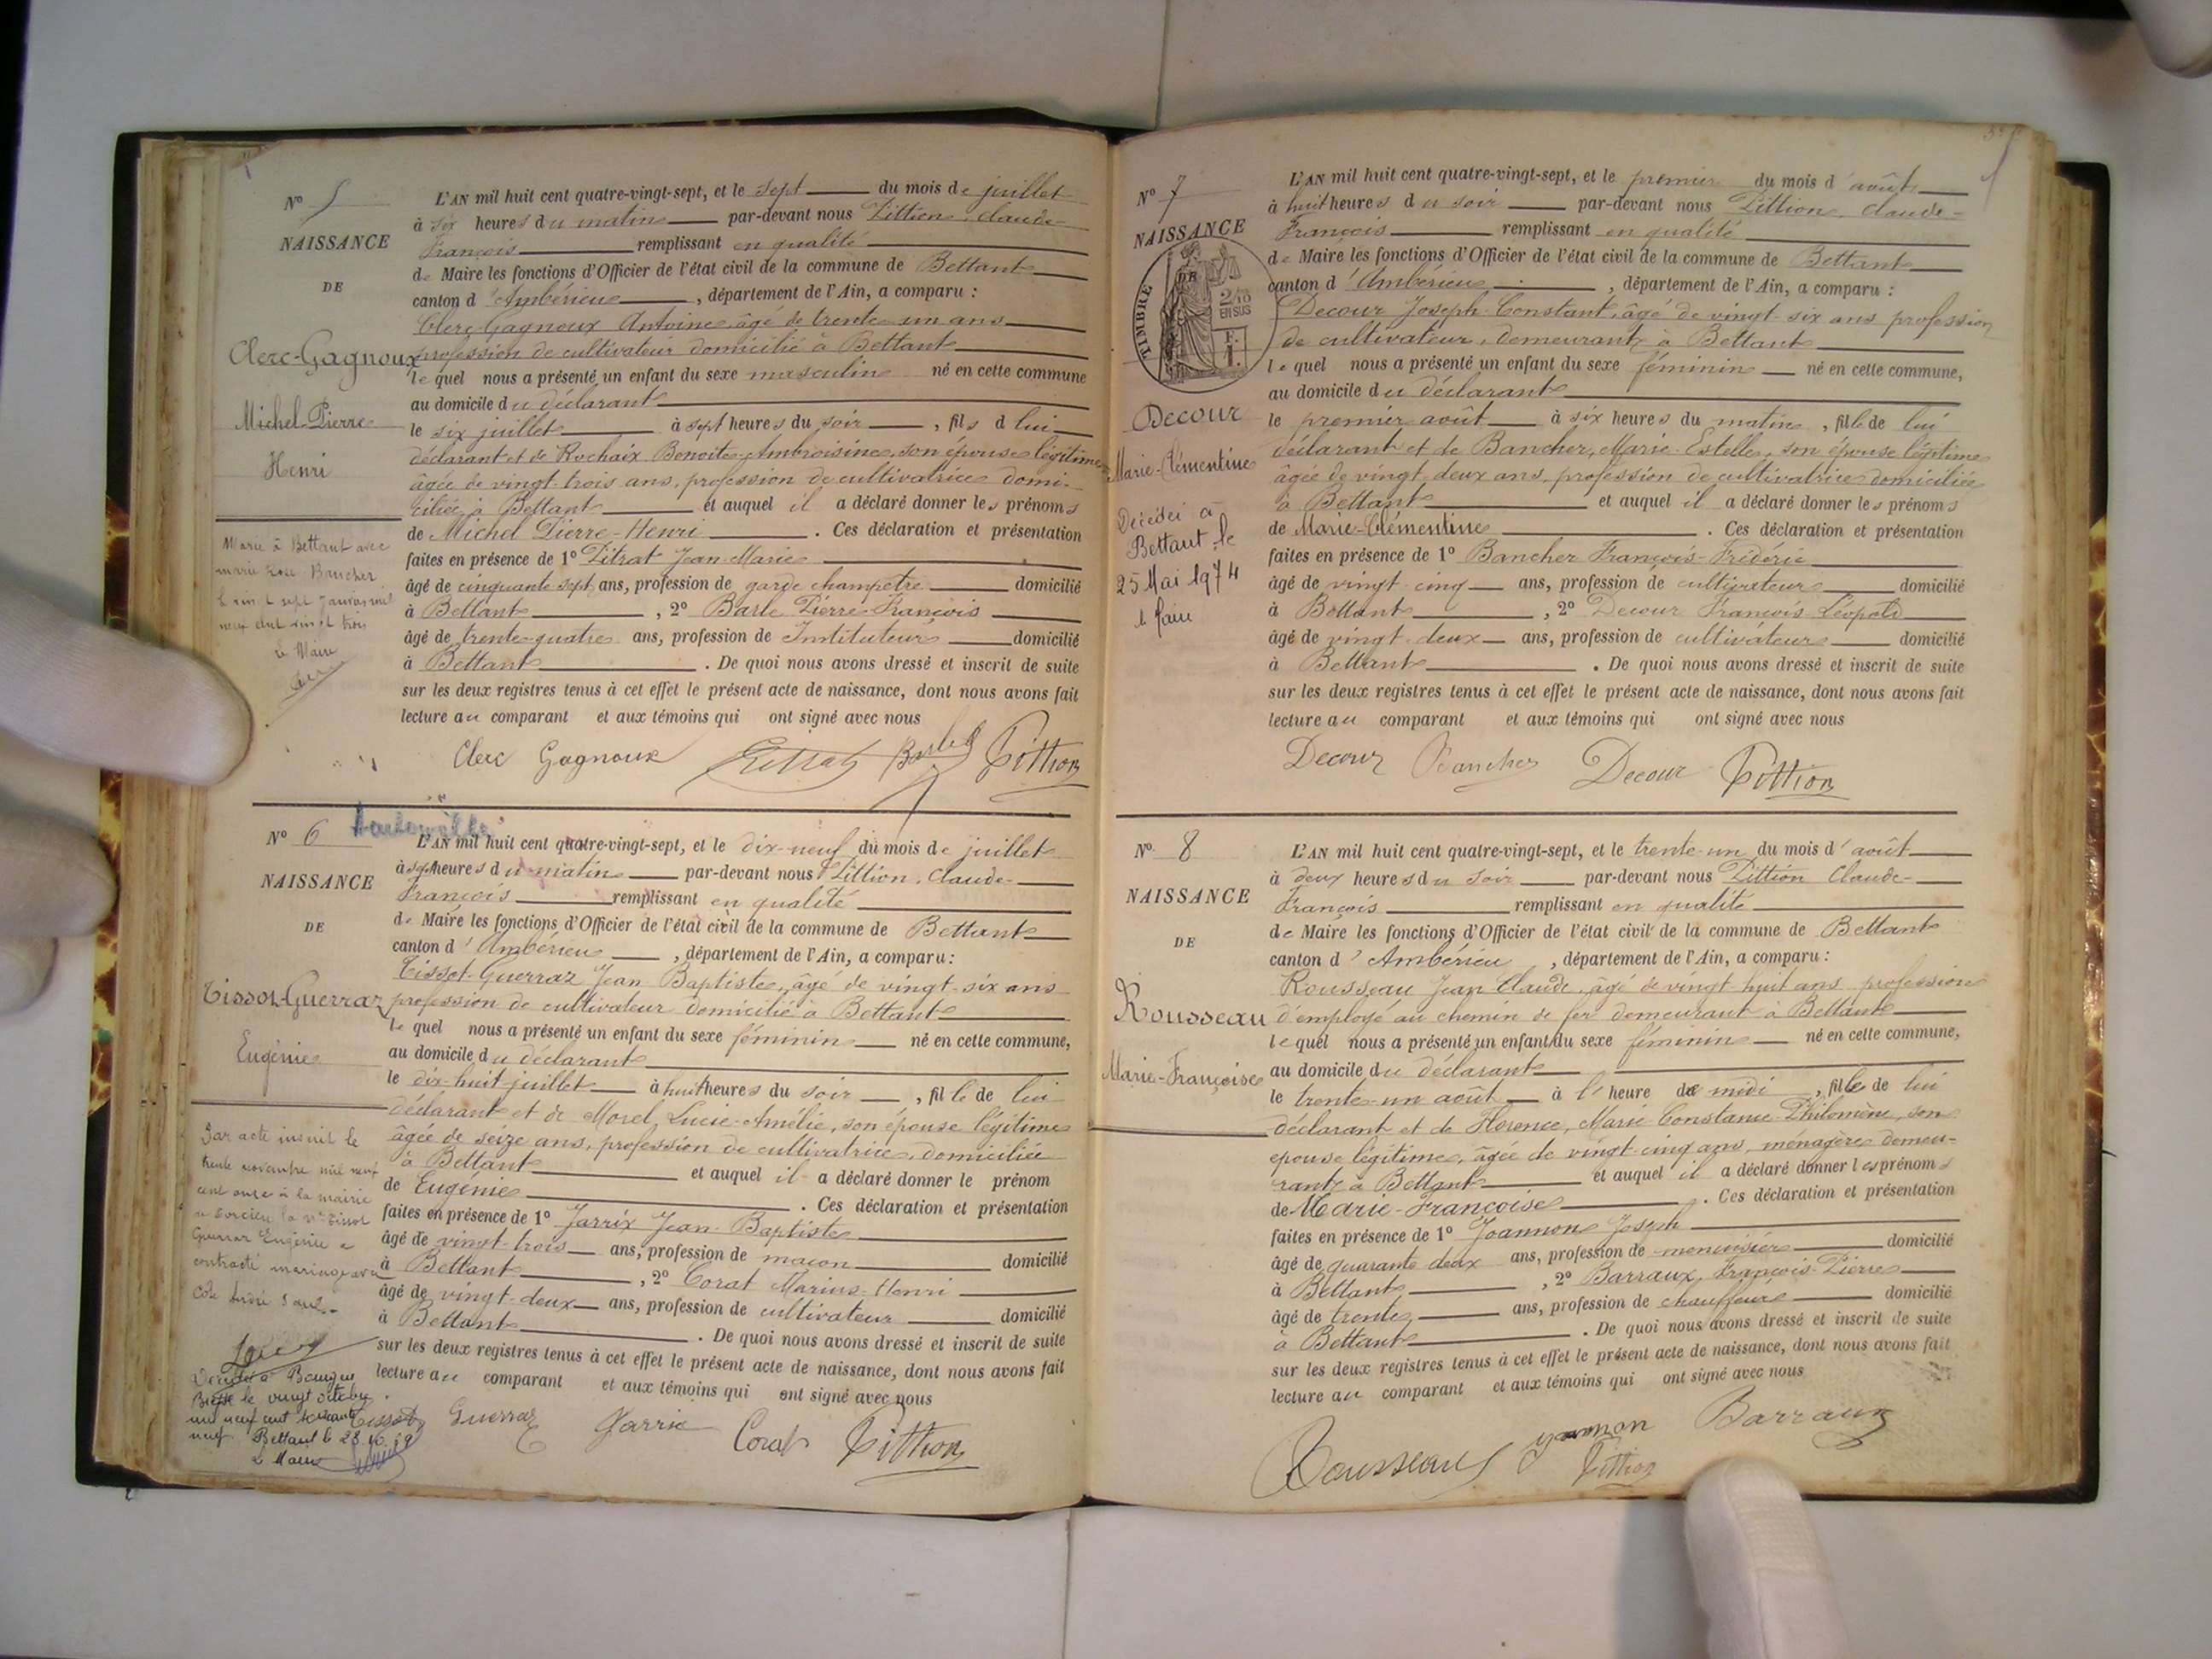 N° 5
NAISSANCE
DE
Clerc-Gagnoux
Michel-Pierre
Henri
Marié à Bettant avec
marie Rose Bancher
le vingt sept janvier mil
neuf cent vingt trois
le Maire
L'AN mil huit cent quatre-vingt-sept, et le sept du mois de juillet
à six heures du matin par-devant nous Pittion, Claude-
François remplissant en qualité
de Maire les fonctions d'Officier de l'état civil de la commune de Bettant
canton d'Ambérieu, département de l'Ain, a comparu :
Clerc-Gagnoux Antoine, âgé de trente un ans
profession de cultivateur domicilié à Bettant
lequel nous a présenté un enfant du sexe masculin né en cette commune
au domicile du déclarant
le six juillet à sept heures du soir, fils d lui
déclarant et de Rochaix Benoite-Ambroisine, son épouse légitime
âgée de vingt-trois ans, profession de cultivatrice domi-
ciliée à Bettant et auquel il a déclaré donner les prénoms
de Michel Pierre-Henri. Ces déclaration et présentation
faites en présence de 1° Titrat Jean-Marie
âgé de cinquante sept ans, profession de garde champetre domicilié
à Bettant, 2° Barle Pierre-François
âgé de trente-quatre ans, profession de Instituteur domicilié
à Bettant. De quoi nous avons dressé et inscrit de suite
sur les deux registres tenus à cet effet le présent acte de naissance, dont nous avons fait
lecture au comparant et aux témoins qui ont signé avec nous
Clerc Gagnoux Barle Pittion
N° 6
NAISSANCE
DE
Tissot-Guerraz
Eugénie
Par acte inscrit le
trente novembre mil neuf
cent onze à la mairie
de Torcieu la Née Tissot
Guerraz Eugénie a
contracté mariage avec
le vingt octobre
mil neuf cent soixante
neuf. Bettant le 28.10.19
Le Maire
L'AN mil huit cent quatre-vingt-sept, et le dix-neuf du mois de juillet
à sept heures du matin par-devant nous Pittion, Claude-
François remplissant en qualité
de Maire les fonctions d'Officier de l'état civil de la commune de Bettant
canton d'Ambérieu, département de l'Ain, a comparu :
Tissot-Guerraz Jean Baptiste, âgé de vingt-six ans
profession de cultivateur domicilié à Bettant
lequel nous a présenté un enfant du sexe féminin né en cette commune,
au domicile du déclarant
le dix-huit juillet à huit heures du soir, fille de lui
déclarant et de Morel Lucie-Amélie, son épouse légitime
âgée de seize ans, profession de cultivatrice, domiciliée
à Bettant et auquel il a déclaré donner le prénom
de Eugénie. Ces déclaration et présentation
faites en présence de 1° Jarrix Jean-Baptiste
âgé de vingt-trois ans, profession de maçon domicilié
à Bettant, 2° Corat Marius-Henri
âgé de vingt-deux ans, profession de cultivateur domicilié
à Bettant. De quoi nous avons dressé et inscrit de suite
sur les deux registres tenus à cet effet le présent acte de naissance, dont nous avons fait
lecture au comparant et aux témoins qui ont signé avec nous
Tissot Guerraz Jarrix Corat Pittion
N° 7
NAISSANCE
DE
TIMBRE
2/10
EN SUS
F.
1.
Decour
Marie-Clémentine
Décédée à
Bettant le
25 Mai 1974
L'AN mil huit cent quatre-vingt-sept, et le premier du mois d'août
à huit heures du soir par-devant nous Pittion, Claude-
François remplissant en qualité
de Maire les fonctions d'Officier de l'état civil de la commune de Bettant
canton d'Ambérieu, département de l'Ain, a comparu :
Decour Joseph-Constant, âgé de vingt-six ans profession
de cultivateur, demeurant à Bettant
lequel nous a présenté un enfant du sexe féminin né en cette commune,
au domicile du déclarant
le premier août à six heures du matin, fille de lui
déclarant et de Bancher, Marie-Estelle, son épouse légitime
âgée de vingt-deux ans, profession de cultivatrice domiciliée
à Bettant et auquel il a déclaré donner les prénoms
de Marie-Clémentine. Ces déclaration et présentation
faites en présence de 1° Bancher François-Frédéric
âgé de vingt-cinq ans, profession de cultivateur domicilié
à Bettant, 2° Decour François Léopold
âgé de vingt-deux ans, profession de cultivateur domicilié
à Bettant. De quoi nous avons dressé et inscrit de suite
sur les deux registres tenus à cet effet le présent acte de naissance, dont nous avons fait
lecture au comparant et aux témoins qui ont signé avec nous
Decour Bancher Decour Pittion
N° 8
NAISSANCE
DE
Rousseau
Marie-Françoise
L'AN mil huit cent quatre-vingt-sept, et le trente-un du mois d'août
à deux heures du soir par-devant nous Pittion Claude-
François remplissant en qualité
de Maire les fonctions d'Officier de l'état civil de la commune de Bettant
canton d'Ambérieu, département de l'Ain, a comparu :
Rousseau Jean Claude, âgé de vingt huit ans profession
d'employé au chemin de fer demeurant à Bettant
lequel nous a présenté un enfant du sexe féminin né en cette commune,
au domicile du déclarant
le trente-un août à l'heure de midi, fille de lui
déclarant et de Florence, Marie Constance Philomène, son
épouse légitime, âgée de vingt-cinq ans, ménagère demeu-
rant à Bettant et auquel il a déclaré donner les prénoms
de Marie-Françoise. Ces déclaration et présentation
faites en présence de 1° Joannon Joseph
âgé de quarante deux ans, profession de menuisier domicilié
à Bettant, 2° Barraux, François-Pierre
âgé de trente ans, profession de chauffeur domicilié
à Bettant. De quoi nous avons dressé et inscrit de suite
sur les deux registres tenus à cet effet le présent acte de naissance, dont nous avons fait
lecture au comparant et aux témoins qui ont signé avec nous
Rousseau Joannon Barraux
Pittion